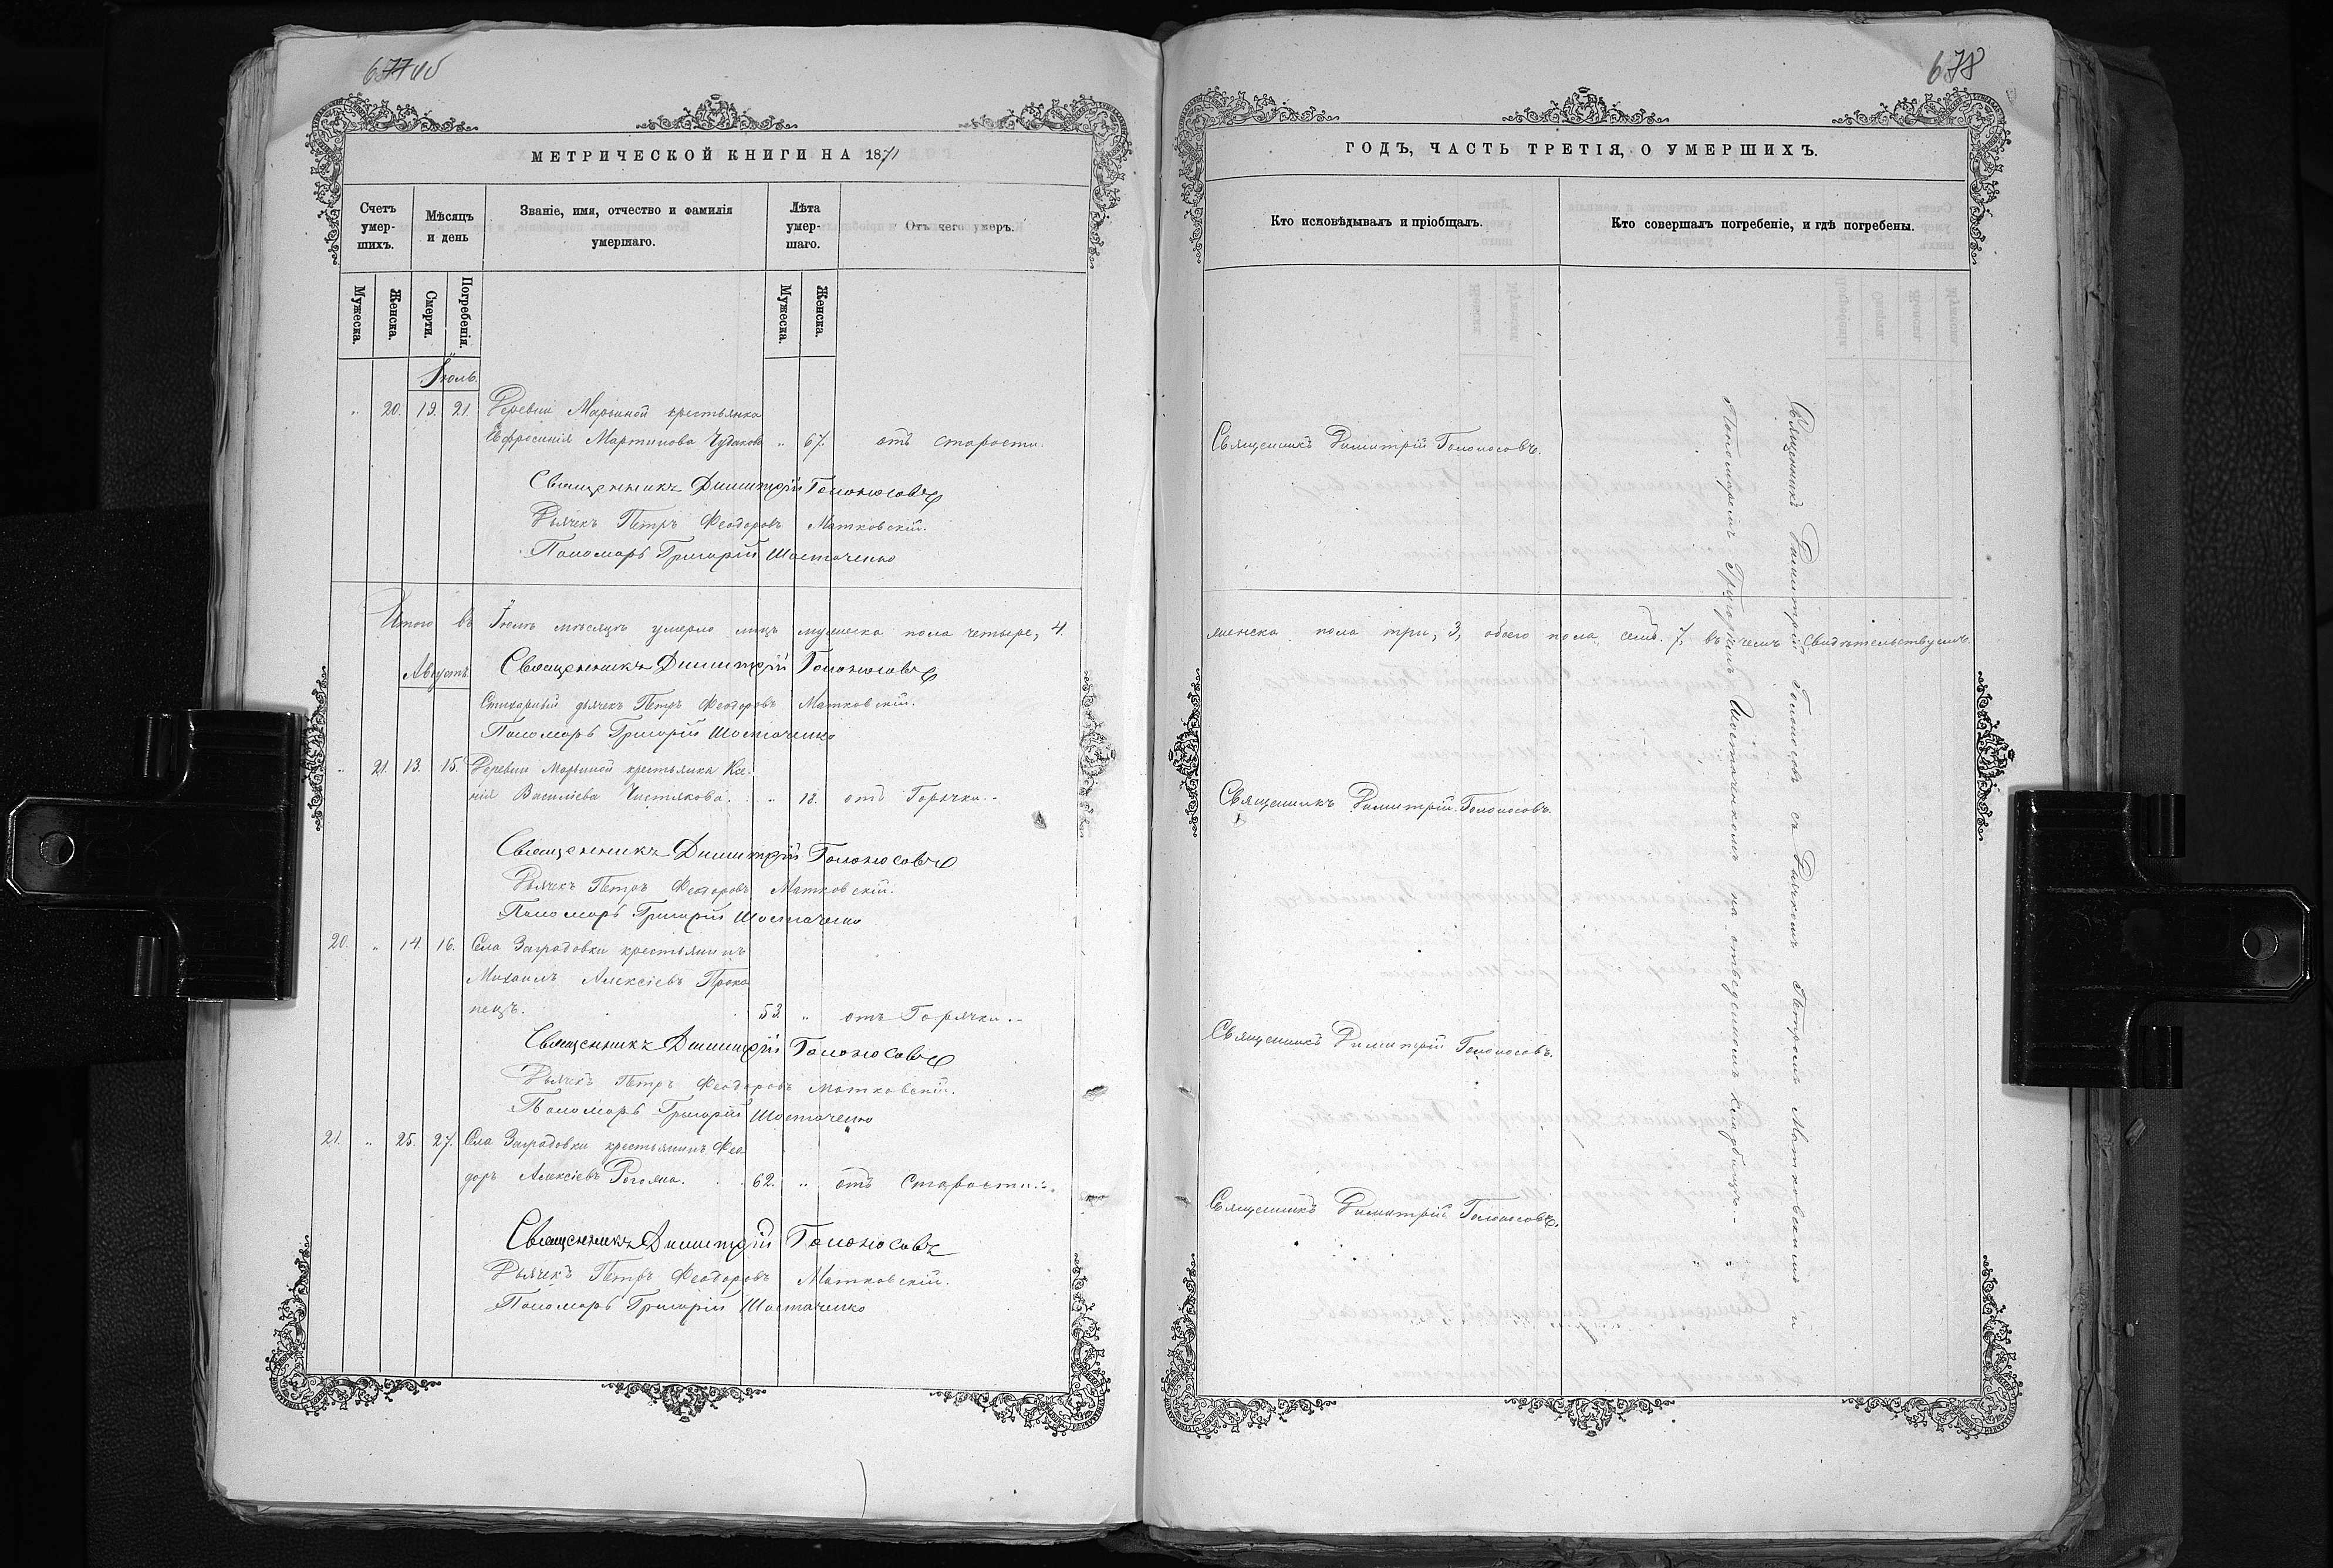 678
МЕТРИЧЕСКОЙ КНИГИ НА 1871
Счетъ умер-шихъ.
Мѣсяцъ и день
Званіе, имя, отчество и фамилія умершаго.
Лѣта умер-шаго.
Отъ чего умеръ.
Мужеска.
Женска.
Смерти.
Погребенія.
Мужеска.
Женска.
Іюль.
" 20. 19. 21. Деревни Марьиной крестьянка
Евфросинія Мартинова Чудакова " 67. отъ старости.
Священникъ Димитрій Голоносовъ
Дьячекъ Петръ Феодоровъ Матковскій.
Пономарь Григорій Шостаченко
Итого въ Іюлѣ мѣсяцѣ умерло лицъ мужеска пола четыре, 4.
Августъ.
Священникъ Димитрій Голоносовъ
Стихарный дьячекъ Петръ Феодоровъ Матковскій.
Пономарь Григорій Шостаченко
" 21. 13. 15. Деревни Марьиной крестьянка Ксе-
нія Василіева Чистякова. " 18. отъ Горячки.
Священникъ Димитрій Голоносовъ
Дьячекъ Петръ Феодоровъ Матковскій.
Пономарь Григорій Шостаченко
20. " 14. 16. Села Заградовки крестьянинъ
Михаилъ Алексіевъ Проко
пецъ. 53. " отъ Горячки.
Священникъ Димитрій Голоносовъ
Дьячекъ Петръ Феодоровъ Матковскій.
Пономарь Григорій Шостаченко
21. " 25. 27. Села Заградовки крестьянинъ Фео
доръ Алексіевъ Рогожа. 62. " отъ Старости.
Священникъ Димитрій Голоносовъ
Дьячекъ Петръ Феодоровъ Матковскій.
Пономарь Григорій Шостаченко
ГОДЪ, ЧАСТЬ ТРЕТІЯ, О УМЕРШИХЪ.
Кто исповѣдывалъ и пріобщалъ.
Кто совершалъ погребеніе, и гдѣ погребены.
Священникъ Димитрій Голоносовъ.
женска пола три, 3, обоего пола семь 7, въ чемъ свидѣтельствуемъ.
Священникъ Димитрій Голоносовъ.
Священникъ Димитрій Голоносовъ.
Священникъ Димитрій Голоносовъ.
Священникъ Димитрій Голоносовъ съ Дьячкомъ Петромъ Матковскимъ и
Пономаремъ Григоріемъ Шостаченкомъ на отведенномъ кладбищѣ.